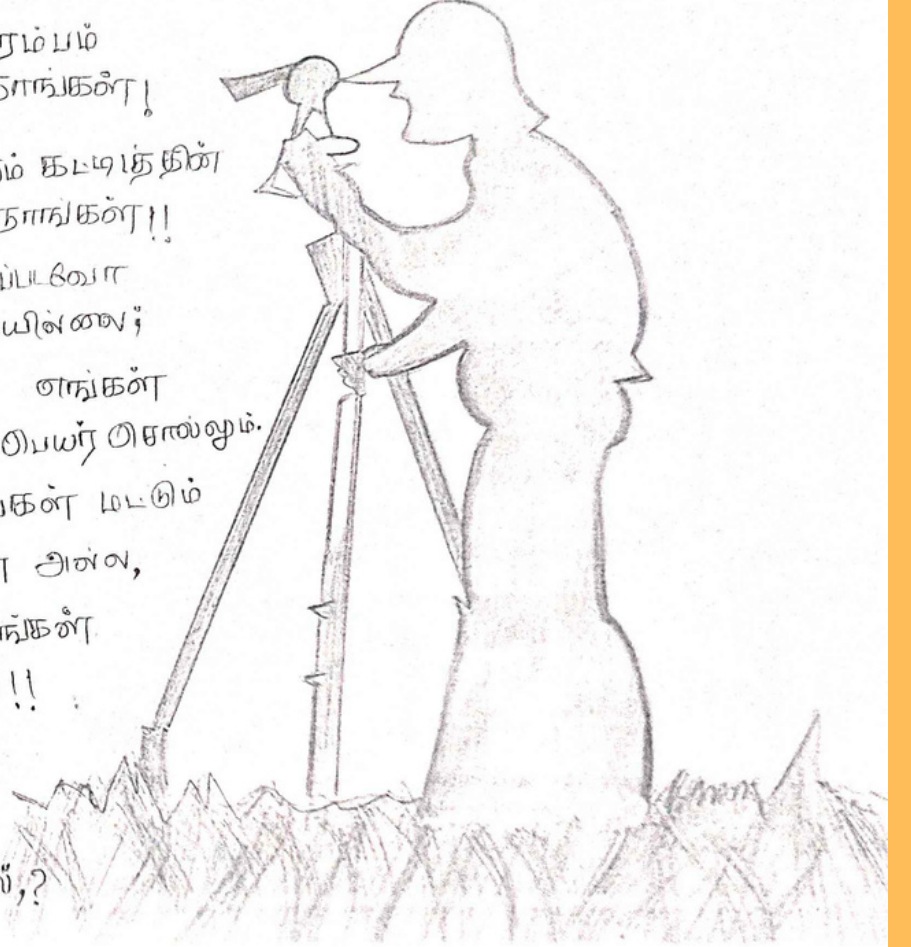 ரம்பம்
நாங்கள்!
ம் கட்டிடத்தின்
நாங்கள்!!
ப்படவோ
யில்லை;
எங்கள்
பெயர் சொல்லும்.
ங்கள் மட்டும்
அல்ல,
ங்கள்
!!